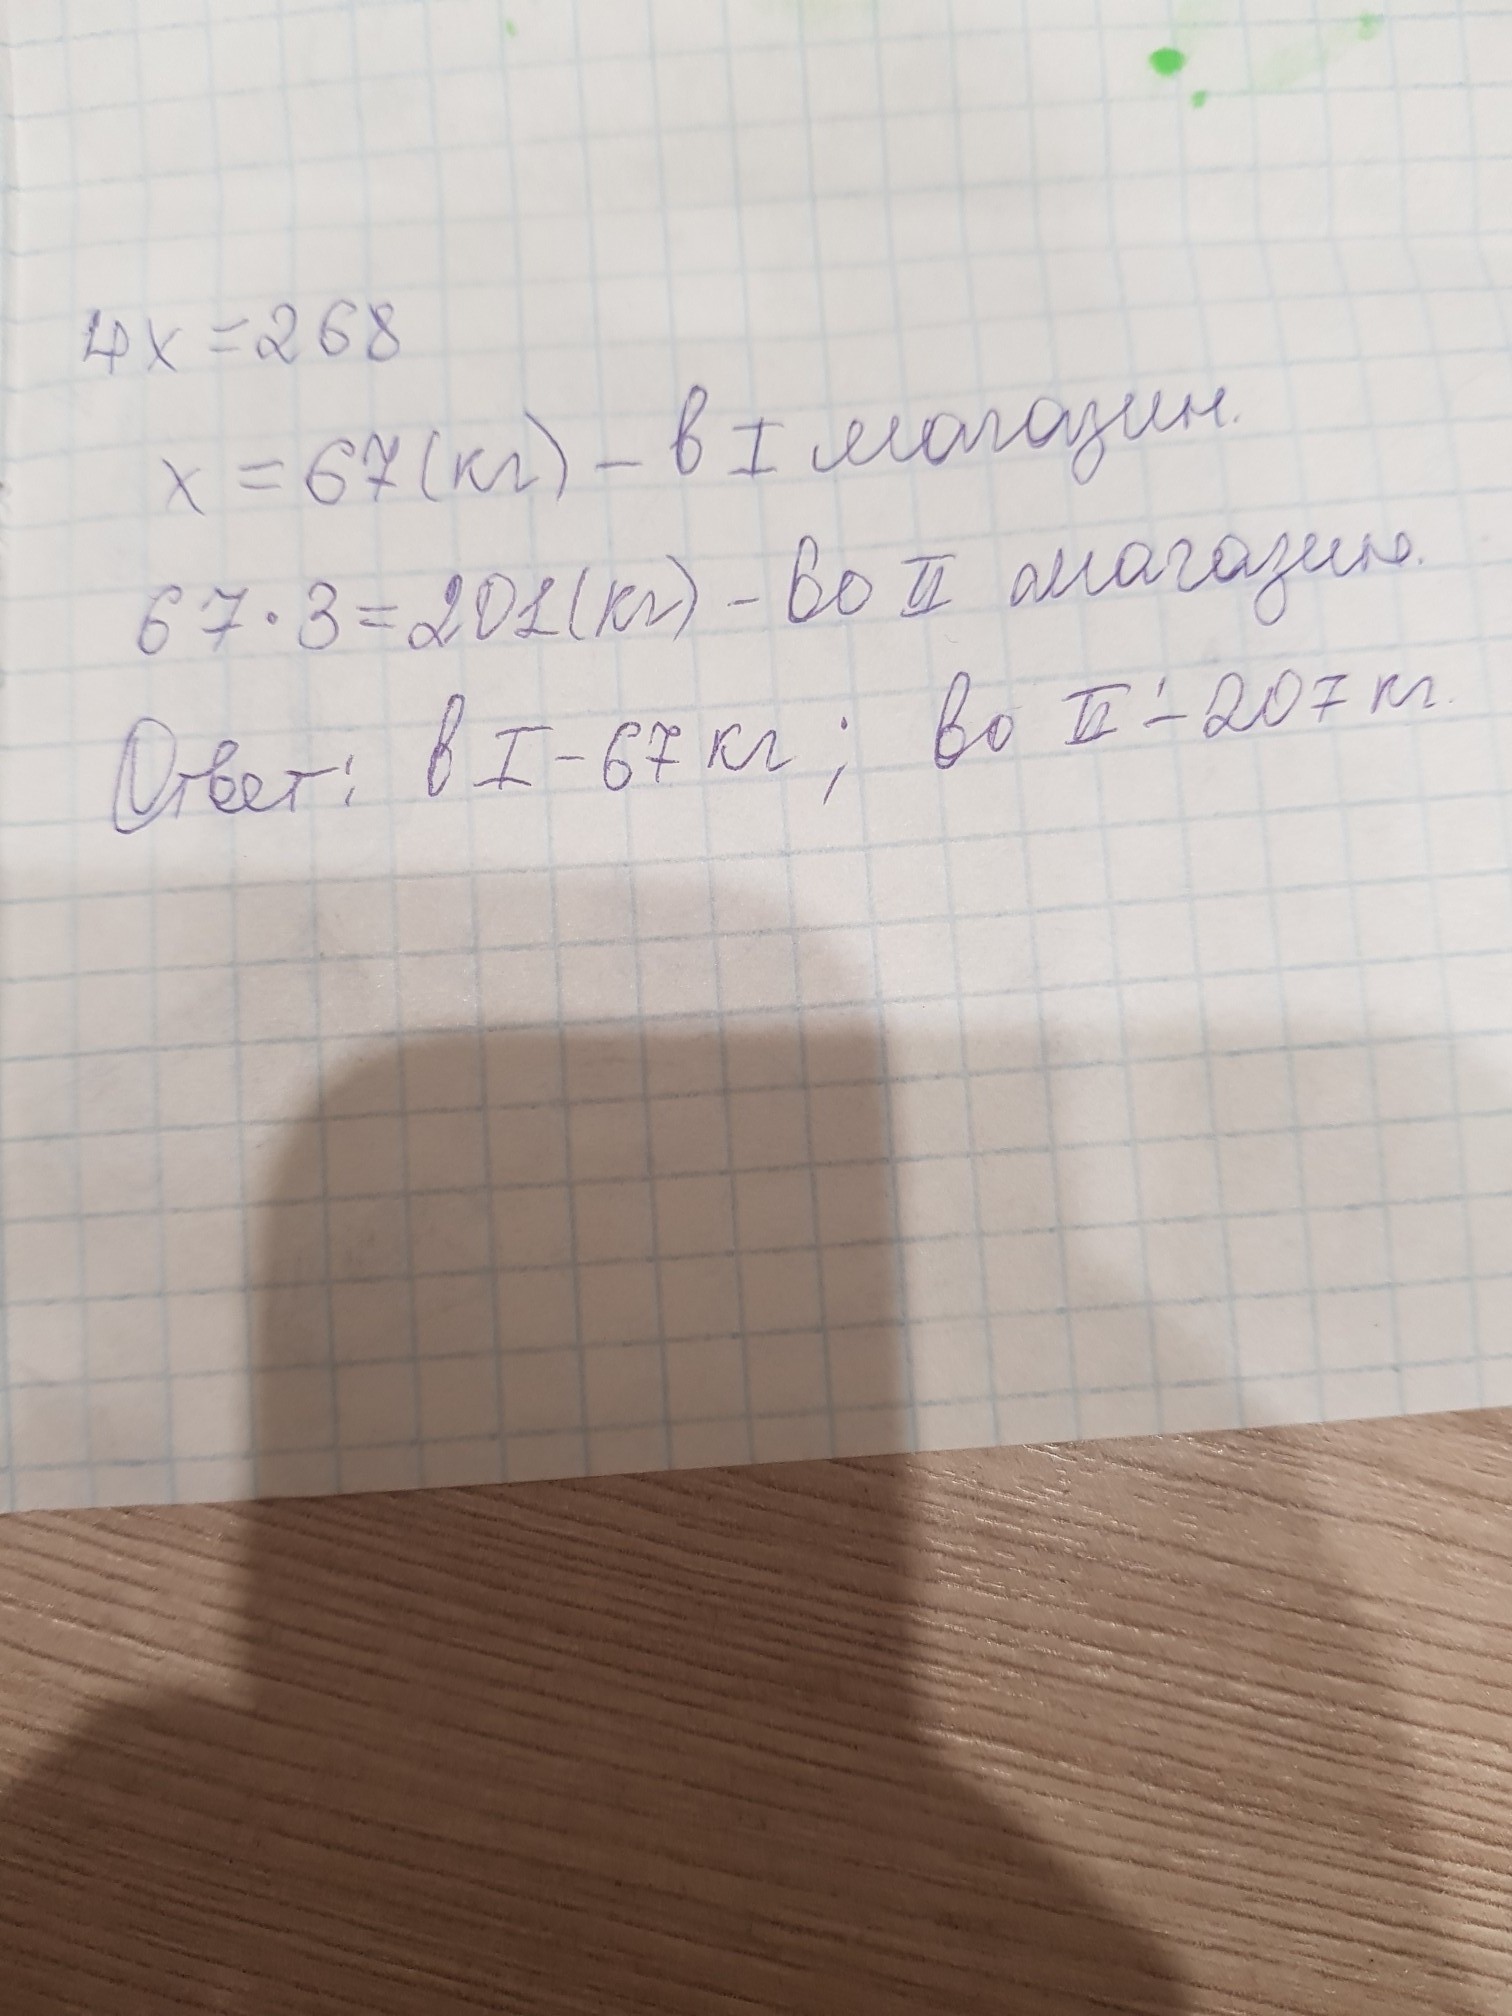 4x=268
x=67(кг) – в I магазин.
67·3=201(кг) – во II магазин.
Ответ: в I – 67 кг; во II – 207 кг.